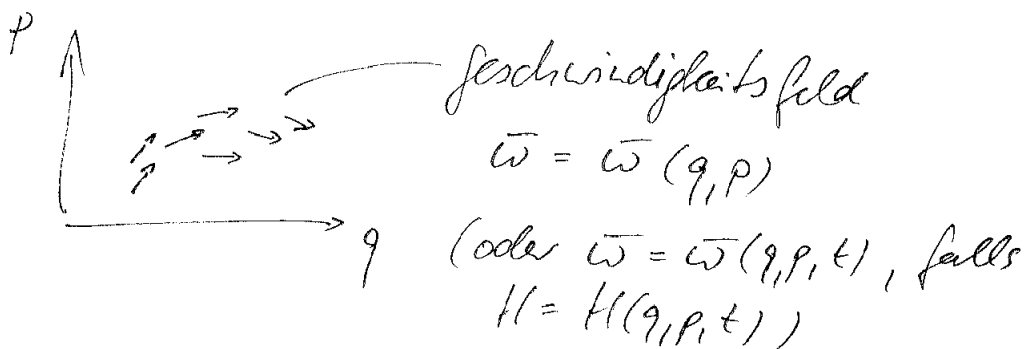 p
geschwindigkeitsfeld
w̄ = w̄ (q,p)
q
(oder w̄ = w̄(q,p,t), falls
H = H(q,p,t))